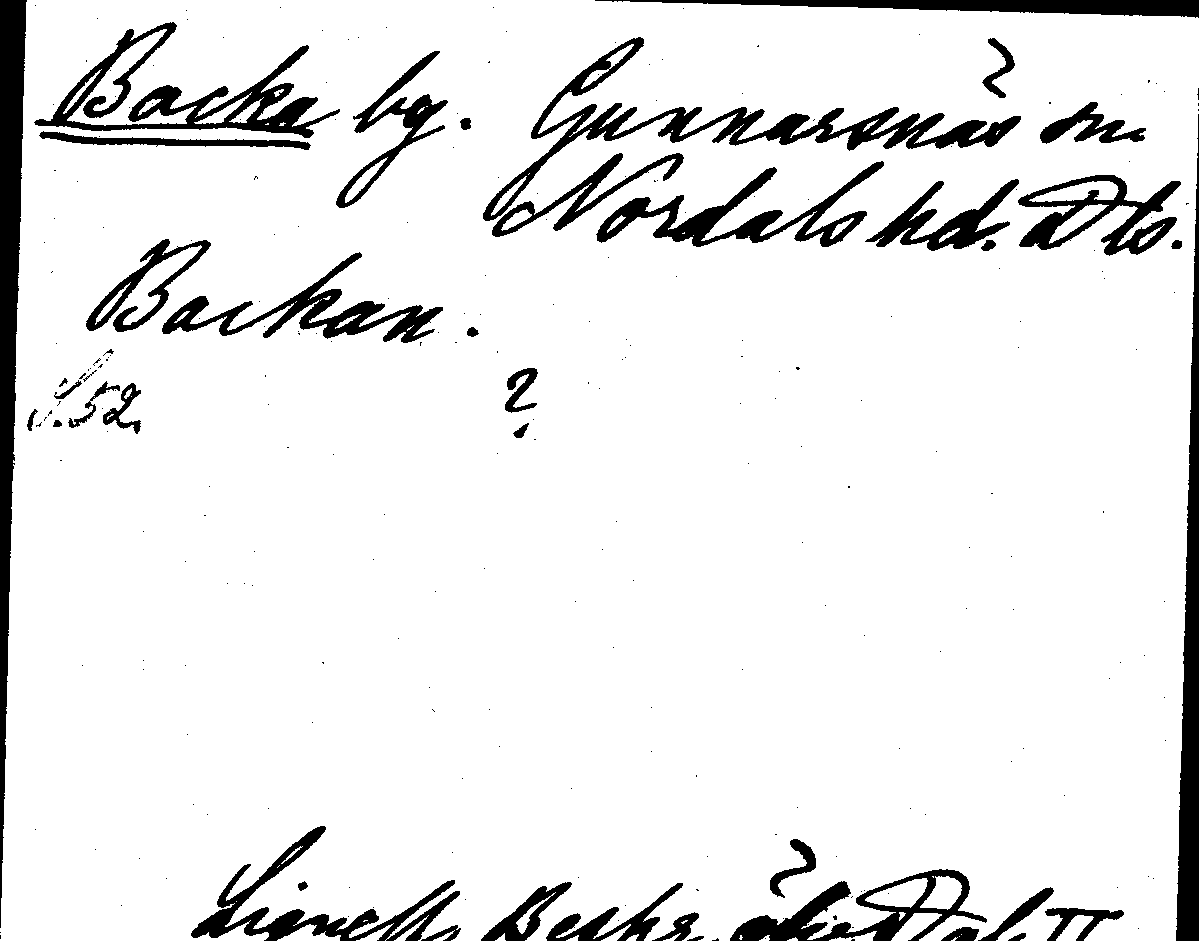 Backa by. Gunnarsnäs sn.
Nordals hd. Dls.
Backan.
S. 52. ?
Lignell, Beskr. över Dal. II